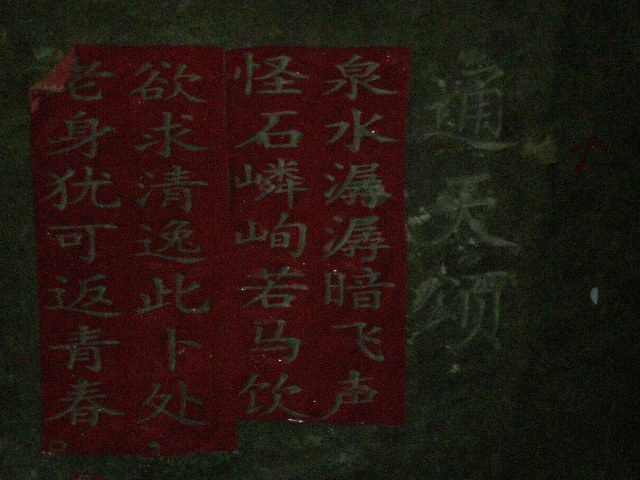 通天颂
泉水潺潺暗飞声
怪石嶙峋若马饮
欲求清逸此卜处
老身犹可返青春。